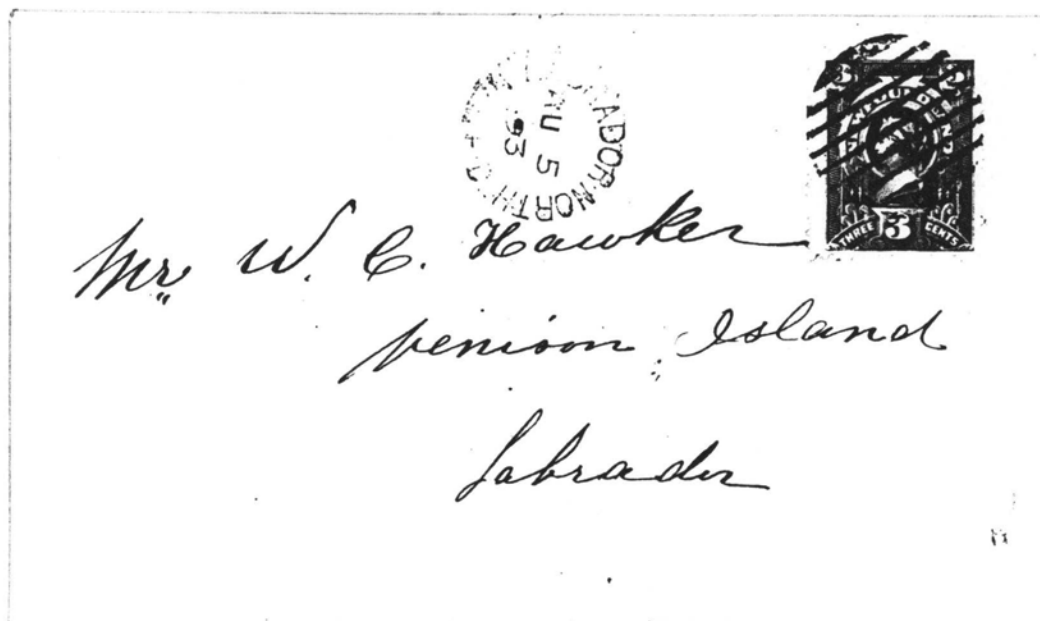 ADOR NORTH
AU 5
93
3
NEWFOUND
THREE 3 CENTS
Mr. W. C. Hawker
Venison Island
Labrador